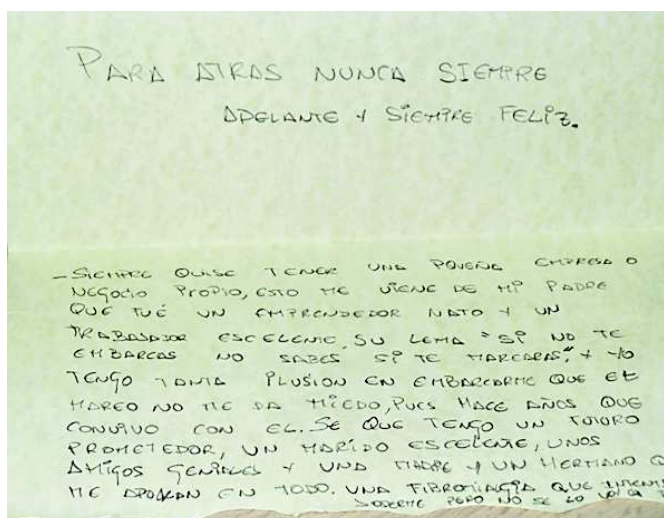 PARA ATRAS NUNCA SIEMPRE
ADELANTE Y SIEMPRE FELIZ.
- SIEMPRE QUISE TENER UNA PQUEÑA EMPRESA O
NEGOCIO PROPIO, ESTO ME VIENE DE MI PADRE
QUE FUÉ UN EMPRENDEDOR NATO Y UN
TRABAJADOR ESCELENTE, SU LEMA "SI NO TE
EMBARCAS NO SABES SI TE MAREARAS", Y YO
TENGO TANTA ILUSION EN EMBARCARME QUE EL
MAREO NO ME DA MIEDO, PUES HACE AÑOS QUE
CONVIVO CON EL. SE QUE TENGO UN FUTURO
PROMETEDOR, UN MARIDO ESCELENTE, UNOS
AMIGOS GENIALES Y UNA MADRE Y UN HERMANO Q
ME APOYAN EN TODO. UNA FIBROMIALGIA QUE
PERO NO SE LO VOY A